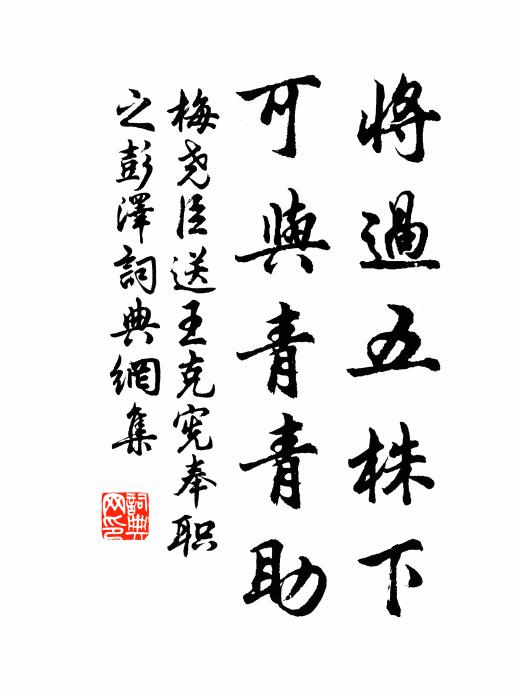 将過五株下
可與青青助
梅尧臣送王克宪奉职
之彭澤詞典網集
詞典
网印